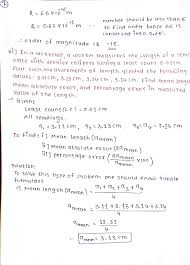 7
R = 0.65 × 10⁻¹⁵ m
R = 0.65 × 10⁻¹⁵ m
number should be less than 5
to find order hence 6.5 is
converted into 0.65.
∴ order of magnitude is -15.
vi] In a workshop, a worker measures the length of a steel
plate with vernier callipers having a least count 0.01cm.
Four such measurements of length yielded the following
values: 3.11cm, 3.13cm, 3.14cm, 3.14cm. Find mean length,
mean absolute error, and percentage error in measured
value of the length.
→ Given:
Least count (L.C) = 0.01 cm
All readings.
a₁ = 3.11 cm, a₂ = 3.13 cm, a₃ = a₄ = 3.14 cm
To find: i] Mean length (a mean)
ii] percentage error (Δa mean / a mean × 100)
Solution:
To solve this type of problem one should know simple
formulaes
i] Mean length (a mean)
a mean = a₁ + a₂ + a₃ + a₄ / 4
a mean = 3.11 + 3.13 + 3.14 + 3.14 / 4
a mean = 12.52 / 4
∴ a mean = 3.13 cm